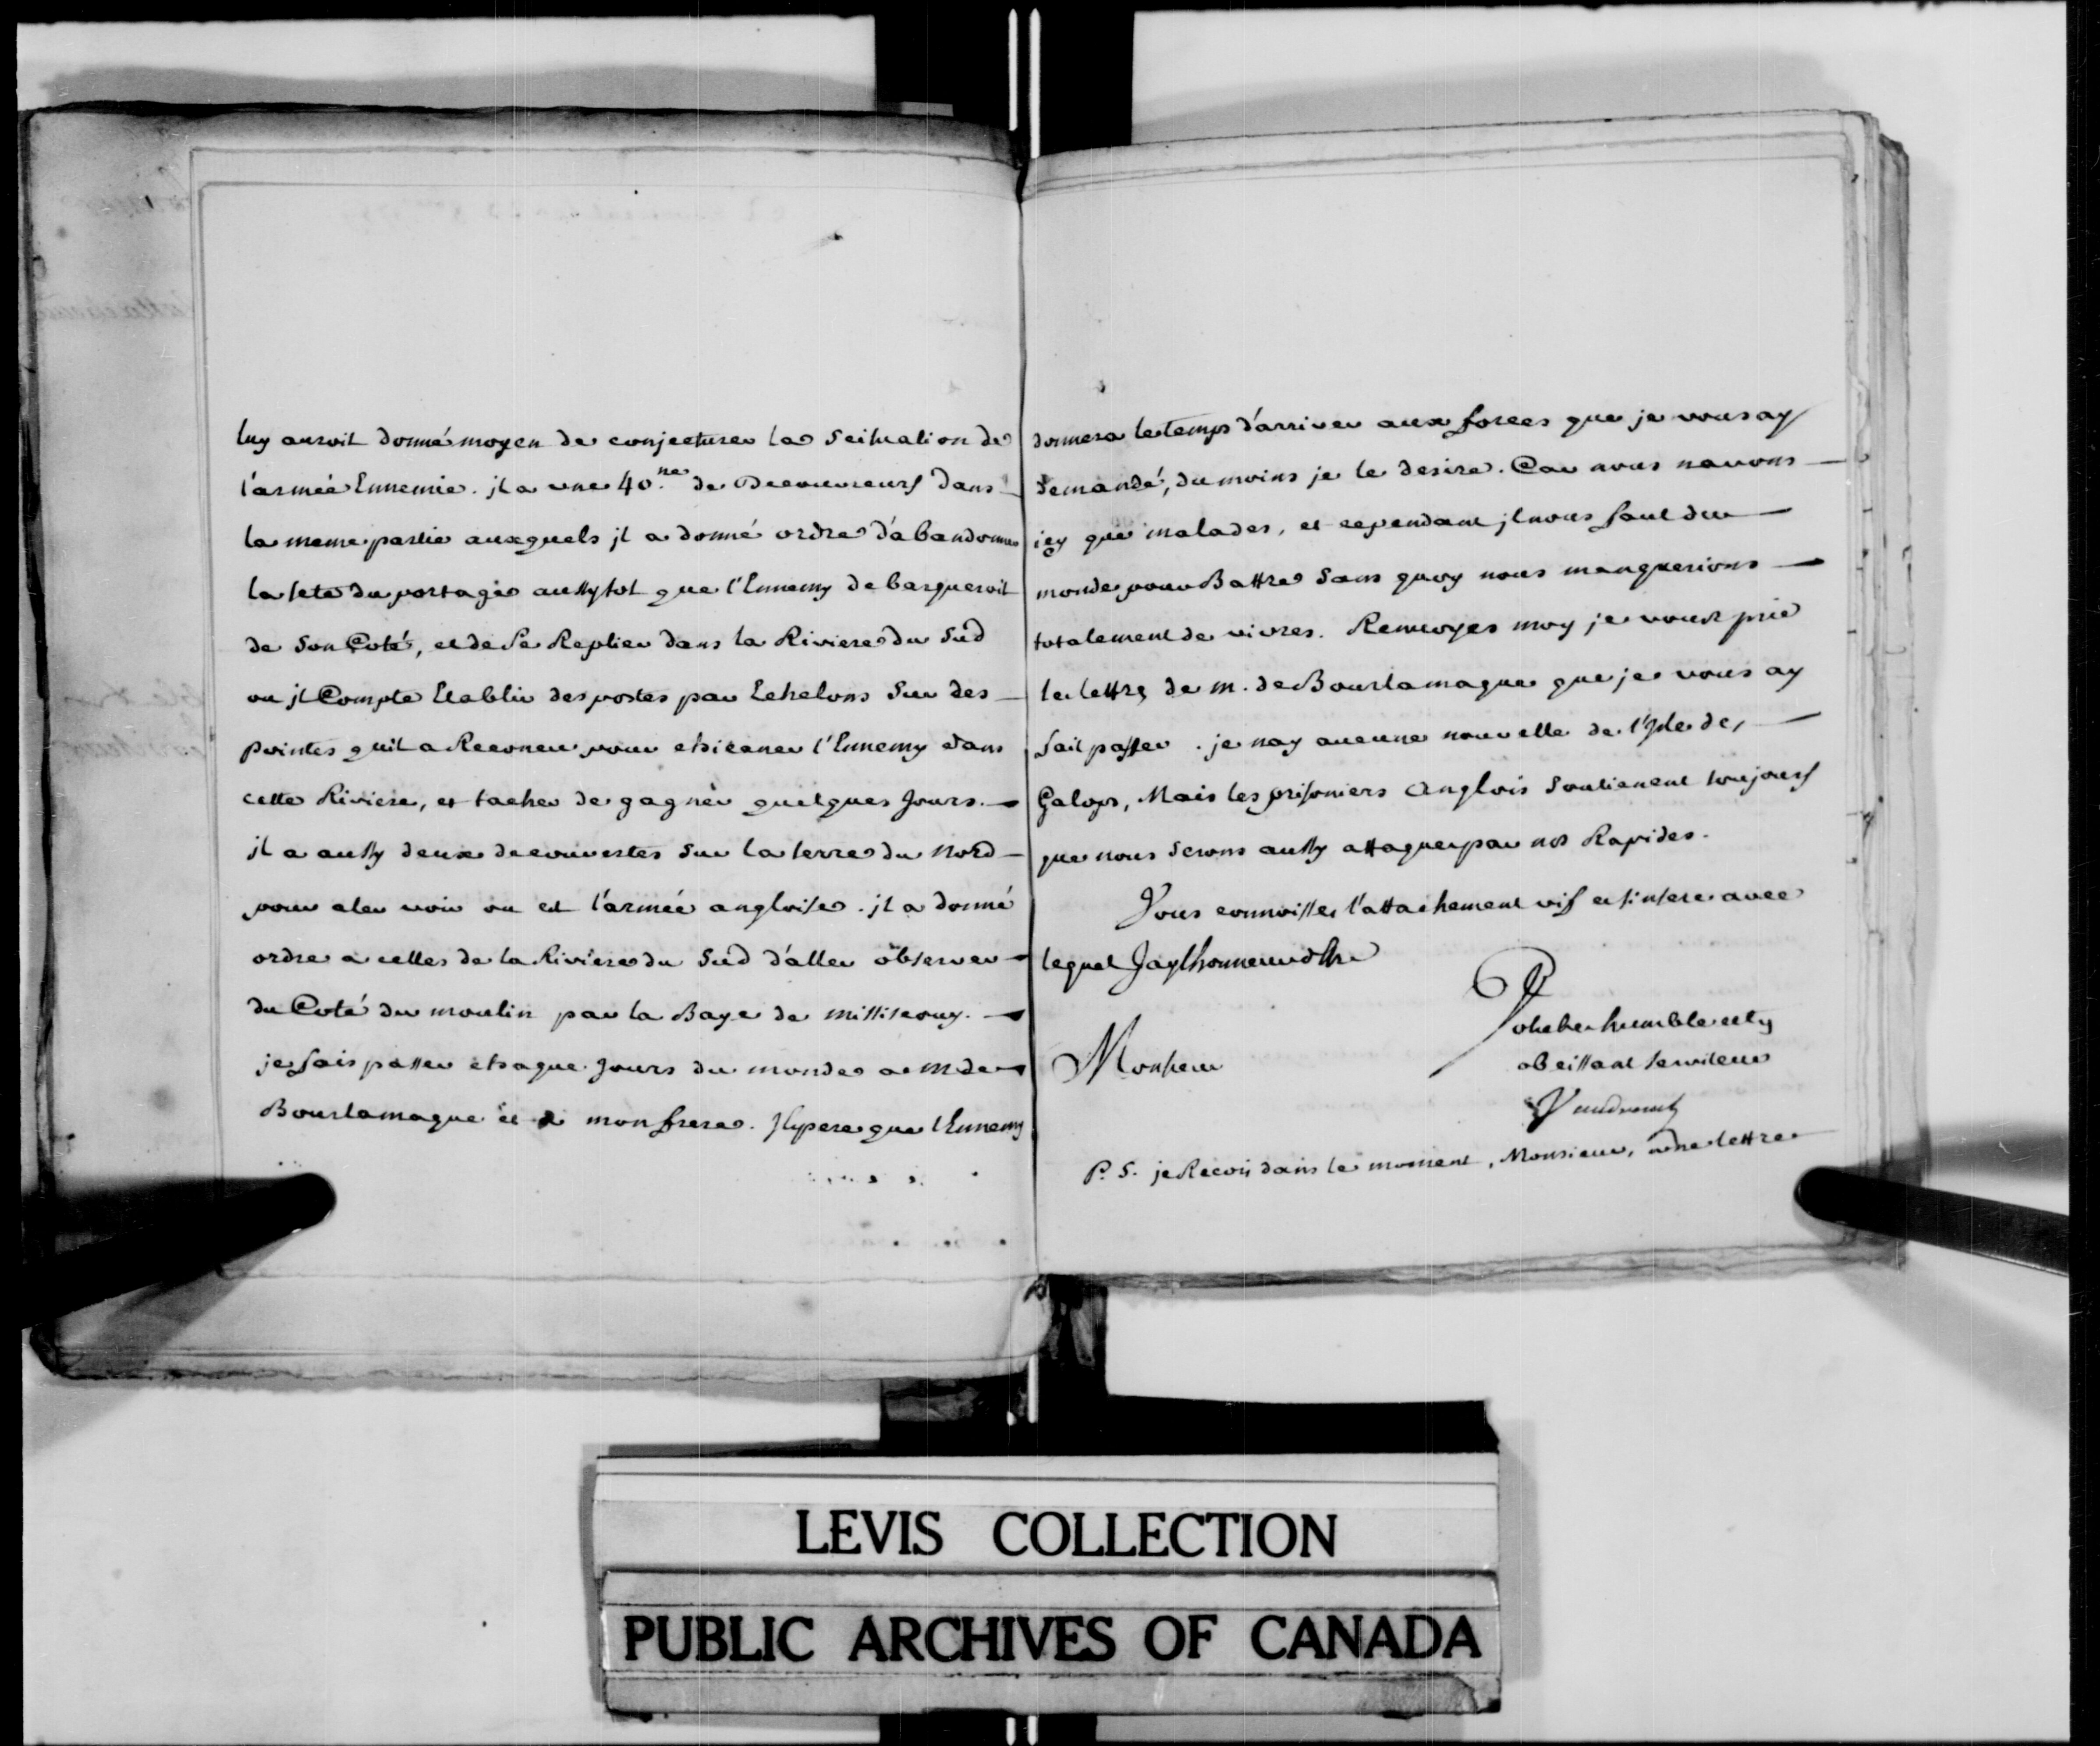 luy auroit donné moyen de conjecturer la Scituation de
l'armée Ennemie. jl a une 40.ne de Decouvreurs dans
la meme partie auxquels jl a donné ordre d'abandonner
la tete du portage aussytot que l'Ennemy debarqueroit
de Son Coté, et de Se Replier dans la Riviere du Sud
ou jl Compte Etablir des postes par Echelons Sur des
pointes qu'il a Reconeu pour chicaner l'Ennemy dans
cette Riviere, et tacher de gagner quelques Jours.
jl a aussy deux decouvertes Sur la terre du Nord
pour aler voir ou est l'armée angloise. jl a donné
ordre a celles de la Riviere du Sud d'aller observer
du Coté du moulin par la Baye de Missiscouy.
je fais passer chaque Jours du monde a M de
Bourlamaque et a mon frere. J'espere que l'Ennemy
donnera le temps d'arriver aux forces que je vous ay
demandé, du moins je le desire. Car nous navons
icy que malades, et cependant jl nous faut du
monde pour Battre Sans quoy nous manquerions
totalement de vivres. Renvoyes moy je vous prie
la lettre de M. de Bourlamaque que je vous ay
fait passer. je nay aucune nouvelle de l'Isle des
Galops, Mais les prisoniers Anglois Soutienent toujours
que nous Serons aussy attaquer par nos Rapides.
Vous connoisses l'attachement vif et sincere avec
lequel Jay lhonneur d'etre
Monsieur
Votre tres humble et tres
obeissant serviteur
Vaudreuil
P. S. je Recois dans le moment, Monsieur, une lettre
LEVIS COLLECTION
PUBLIC ARCHIVES OF CANADA